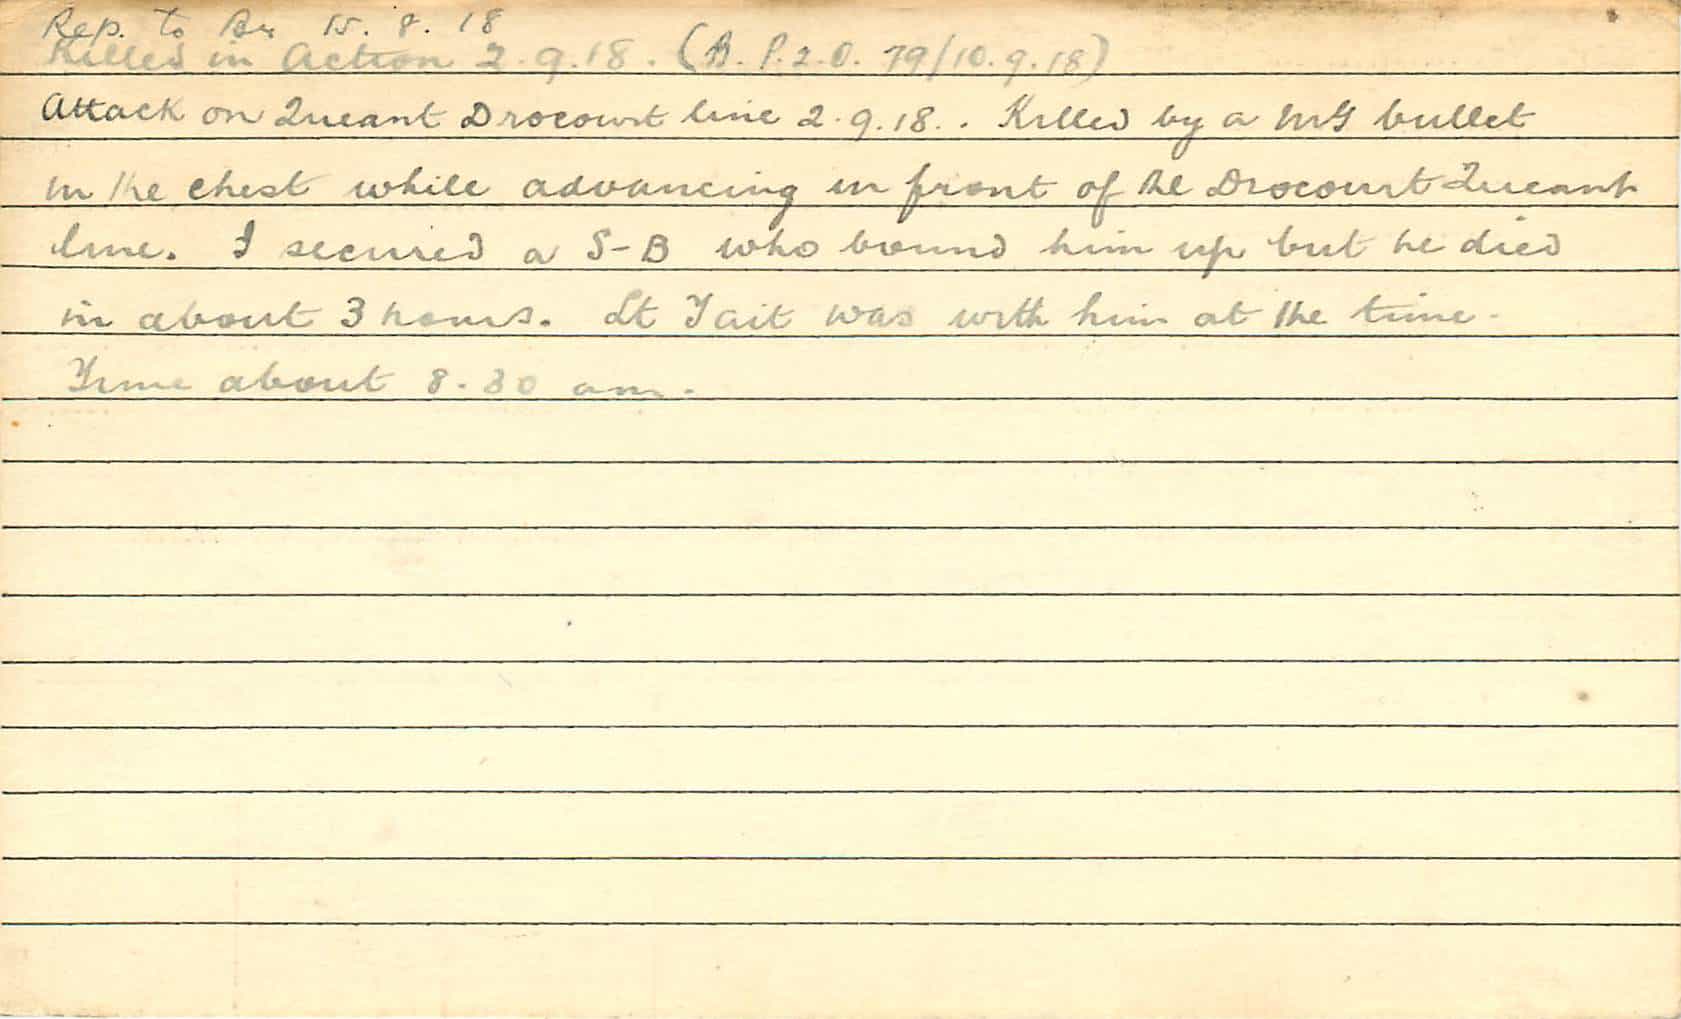 Rep. to Bn 15. 8. 18
Killed in Action 2.9.18. (B. P.2.O. 79/10.9.18)
Attack on Queant Drocourt line 2.9.18.. Killed by a MG bullet
in the chest while advancing in front of the Drocourt-Queant
line. I secured a S-B who bound him up but he died
in about 3 hours. Lt Tait was with him at the time.
Time about 8.30 am.